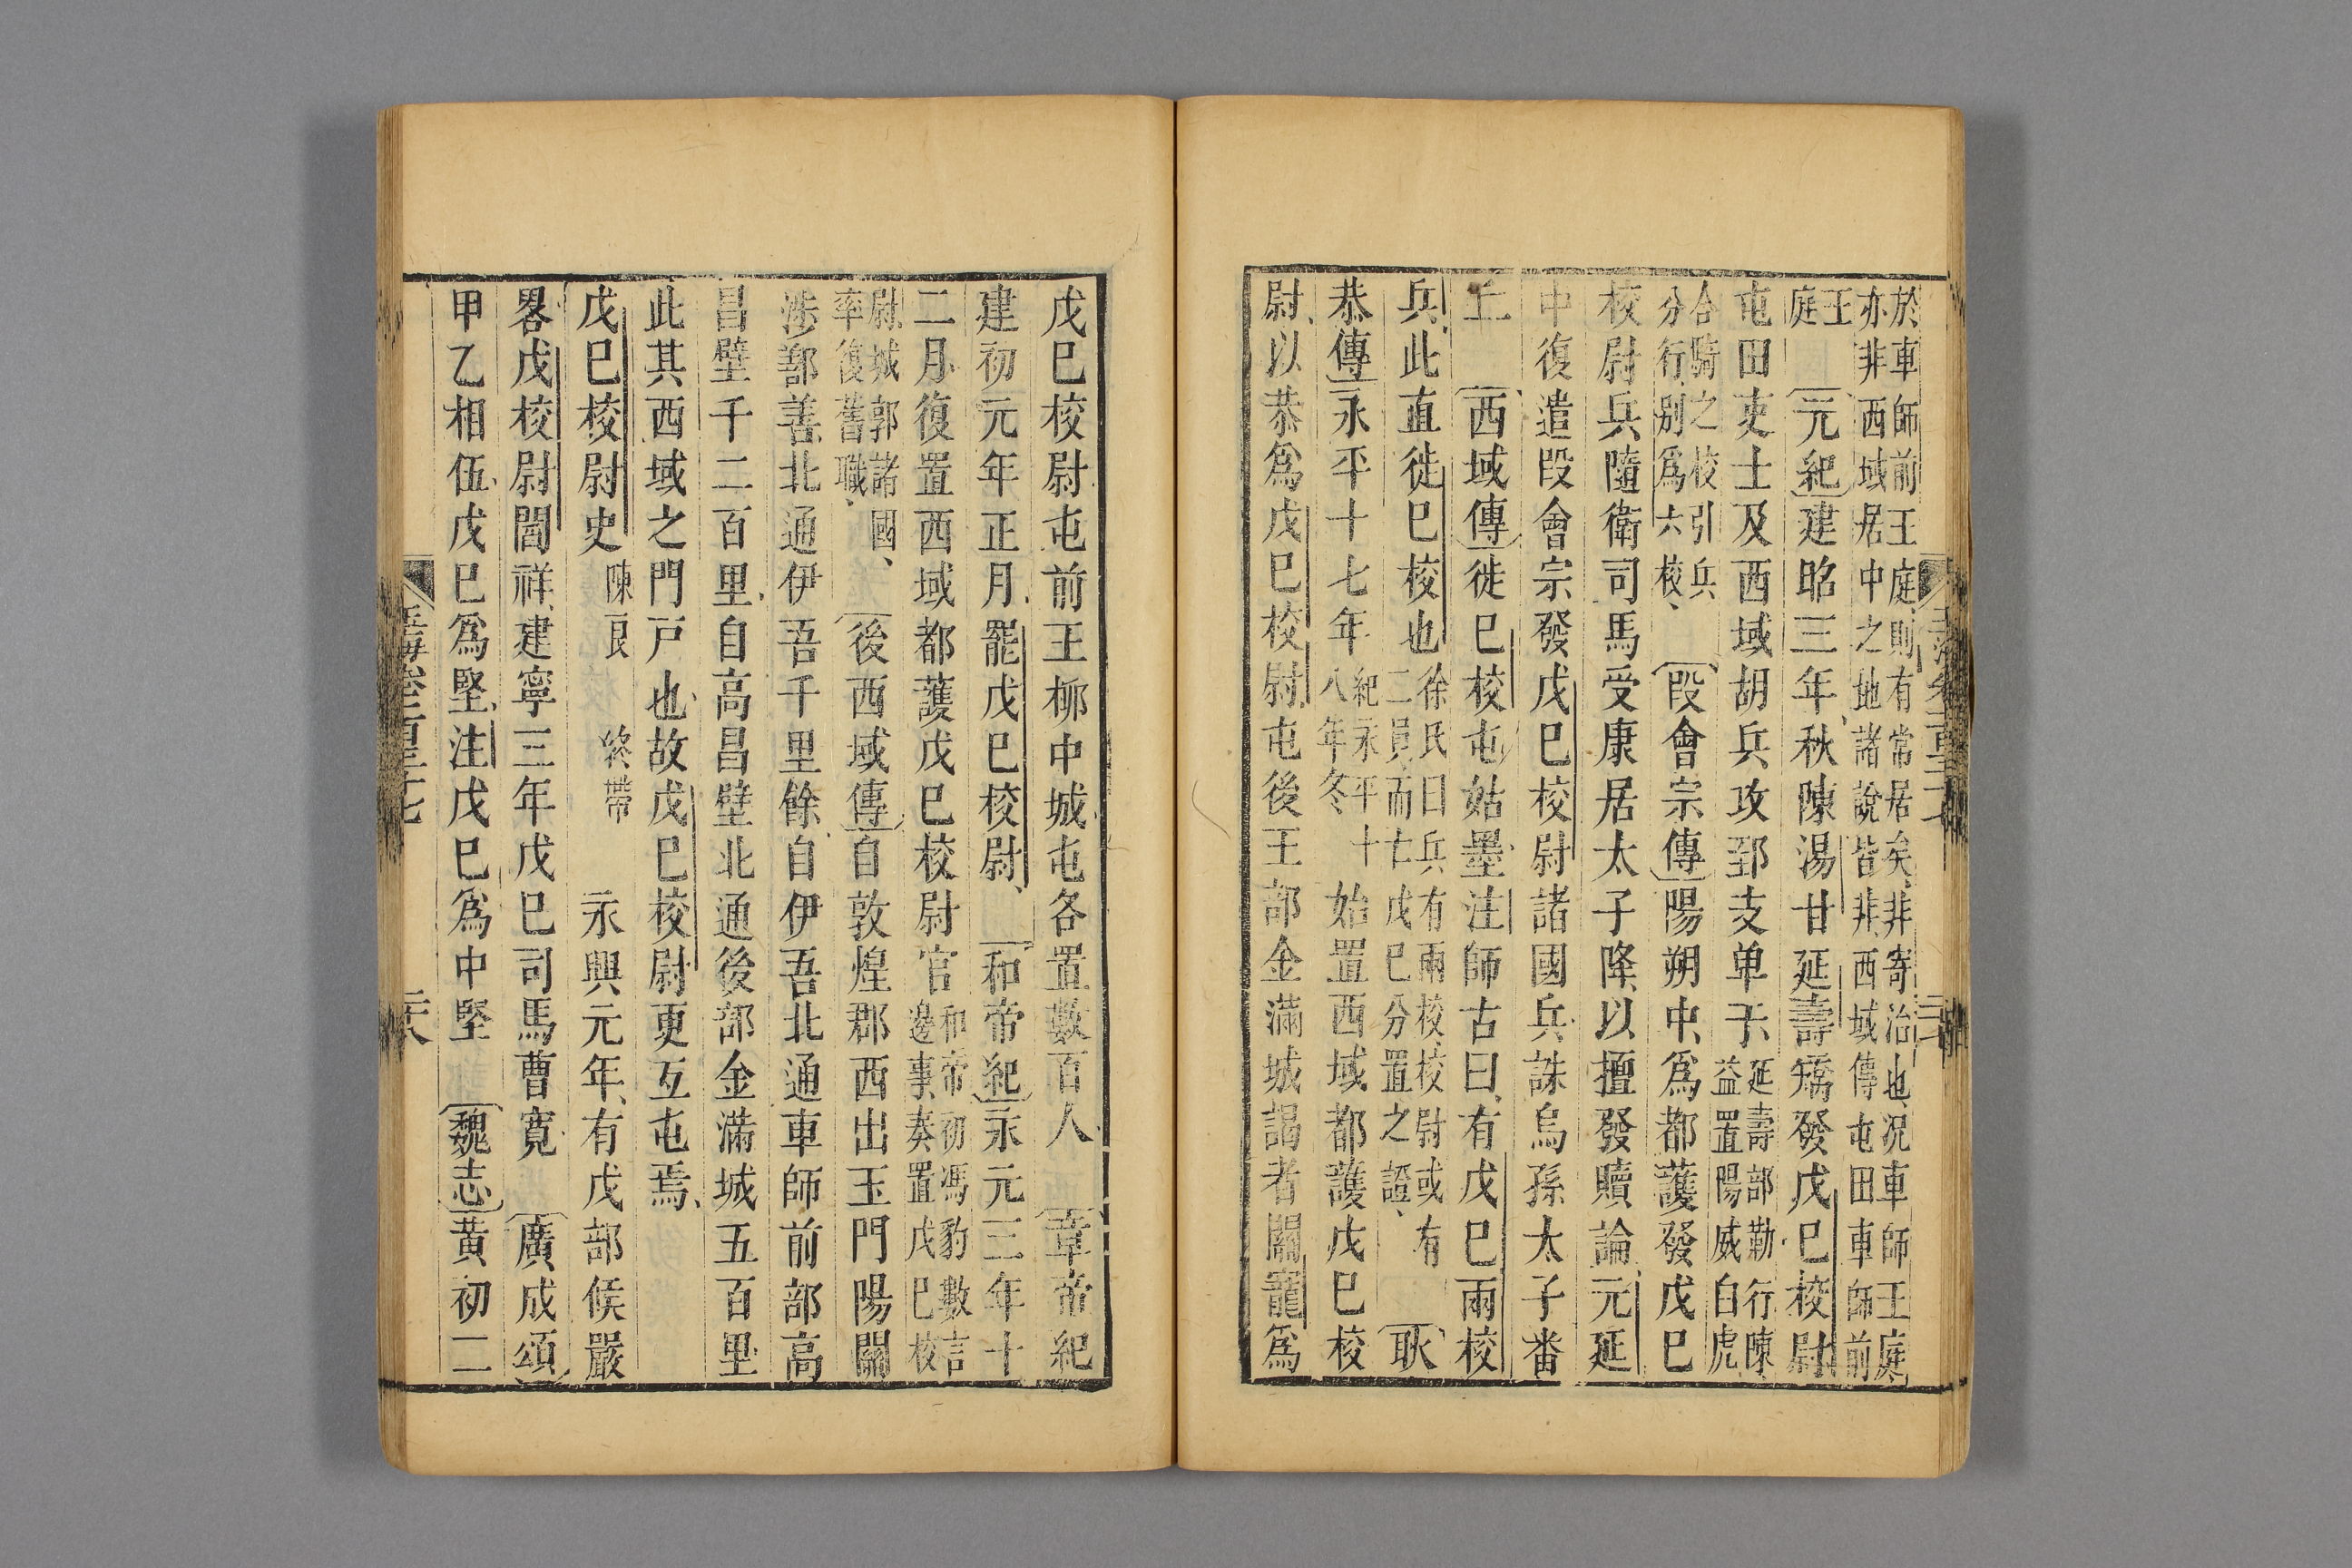 於車師前王庭則有常居矣非寄治也況車師王庭
亦非西域居中之地諸說皆非西域傳屯田車師前
王
庭
元紀建昭三年秋陳湯甘延壽矯發戊巳校尉
屯田吏士及西域胡兵攻郅支单于
延壽部勒行陳
益置陽威白虎
合騎之校引兵
分行別爲六校
段會宗傳陽朔中爲都護發戊巳
校尉兵隨衛司馬受康居太子降以擅發贖論元延
中復遣段會宗發戊巳校尉諸國兵誅烏孫太子番
丘
西域傳徙巳校屯姑墨注師古曰有戊巳兩校
兵此直徙巳校也
徐氏曰兵有兩校校尉或有
二員而亡戊巳分置之證
耿
恭傳永平十七年
紀永平十
八年冬
始置西域都護戊巳校
尉以恭爲戊巳校尉屯後王部金滿城謁者關寵爲
戊巳校尉屯前王柳中城屯各置數百人
章帝紀
建初元年正月罷戊巳校尉
和帝紀永元三年十
二月復置西域都護戊巳校尉官
和帝初馮豹數言
邊事奏置戊巳校
尉城郭諸國
率復舊職
後西域傳自敦煌郡西出玉門陽關
涉鄯善北通伊吾千里餘自伊吾北通車師前部高
昌壁千二百里自高昌壁北通後部金滿城五百里
此其西域之門戸也故戊巳校尉更互屯焉
戊巳校尉史
陳良
終帶
永興元年有戊部候嚴
畧戊校尉閻祥建寧三年戊巳司馬曹寛
廣成頌
甲乙相伍戊巳爲堅注戊巳爲中堅
魏志黃初二